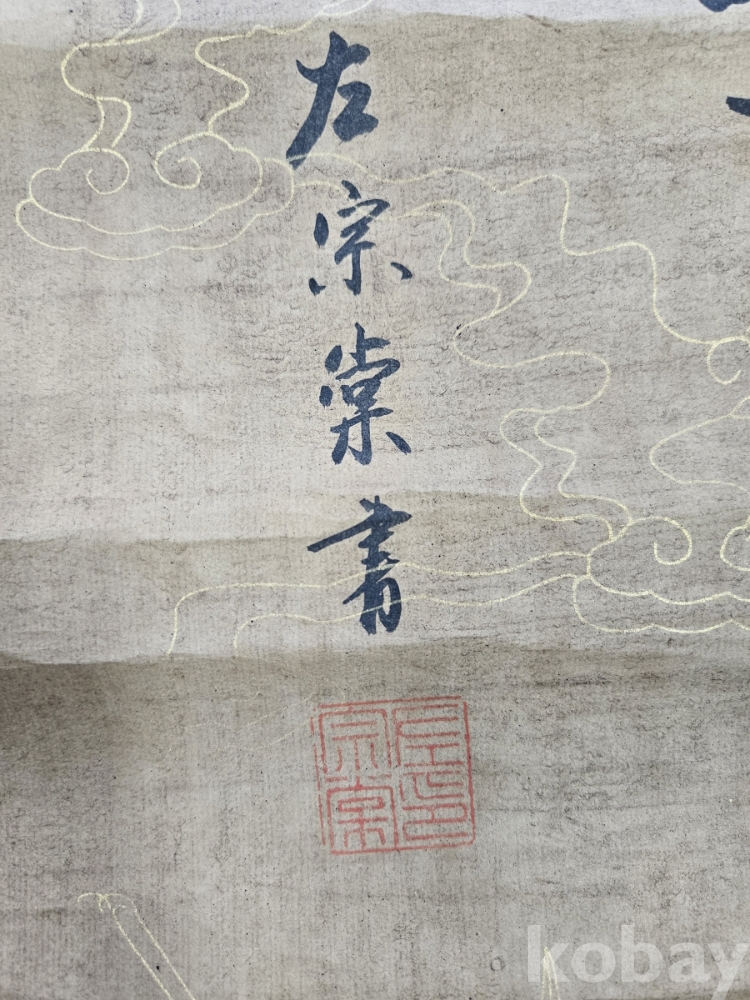 左宗棠書
左宗棠印
kobay